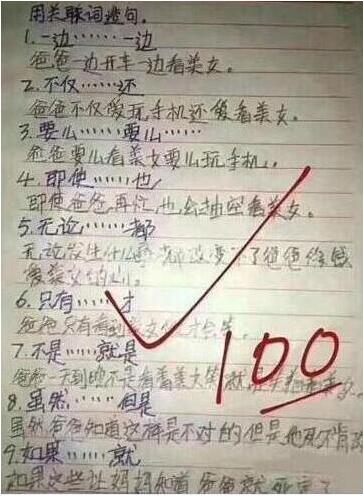 用关联词造句。
1.一边……一边
爸爸一边开车一边看美女。
2.不仅……还
爸爸不仅爱玩手机还爱看美女。
3.要么……要么……
爸爸要么看美女要么玩手机。
4.即使……也
即使爸爸再忙,也会抽空看美女。
5.无论……都
无论发生什么事都改变不了爸爸
爱美女的心。
6.只有……才
爸爸只有看到美女才会笑。
7.不是……就是
爸爸一天到晚不是看着美女笑就是
8.虽然……但是
虽然爸爸知道这样是不对的但是他
9.如果……就
如果这些让妈妈知道爸爸就死定了
100